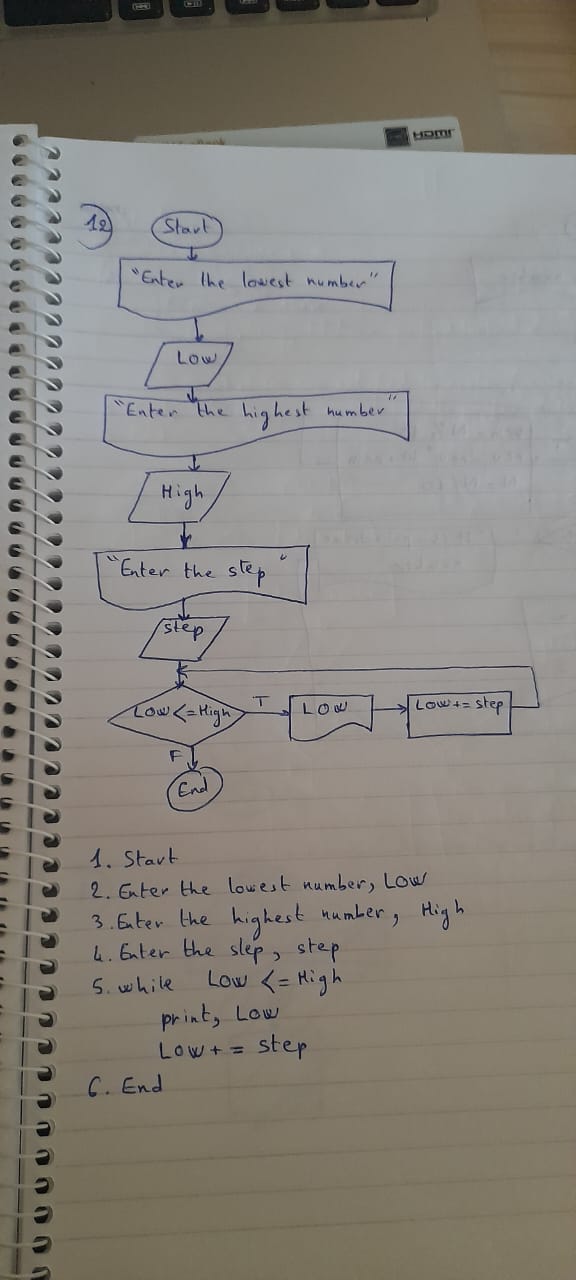 HDMI
12)
Start
"Enter the lowest number"
Low
"Enter the highest number"
High
"Enter the step"
step
Low <= High
T
Low
Low += step
F
End
1. Start
2. Enter the lowest number, Low
3. Enter the highest number, High
4. Enter the step, step
5. while Low <= High
print, Low
Low += step
6. End